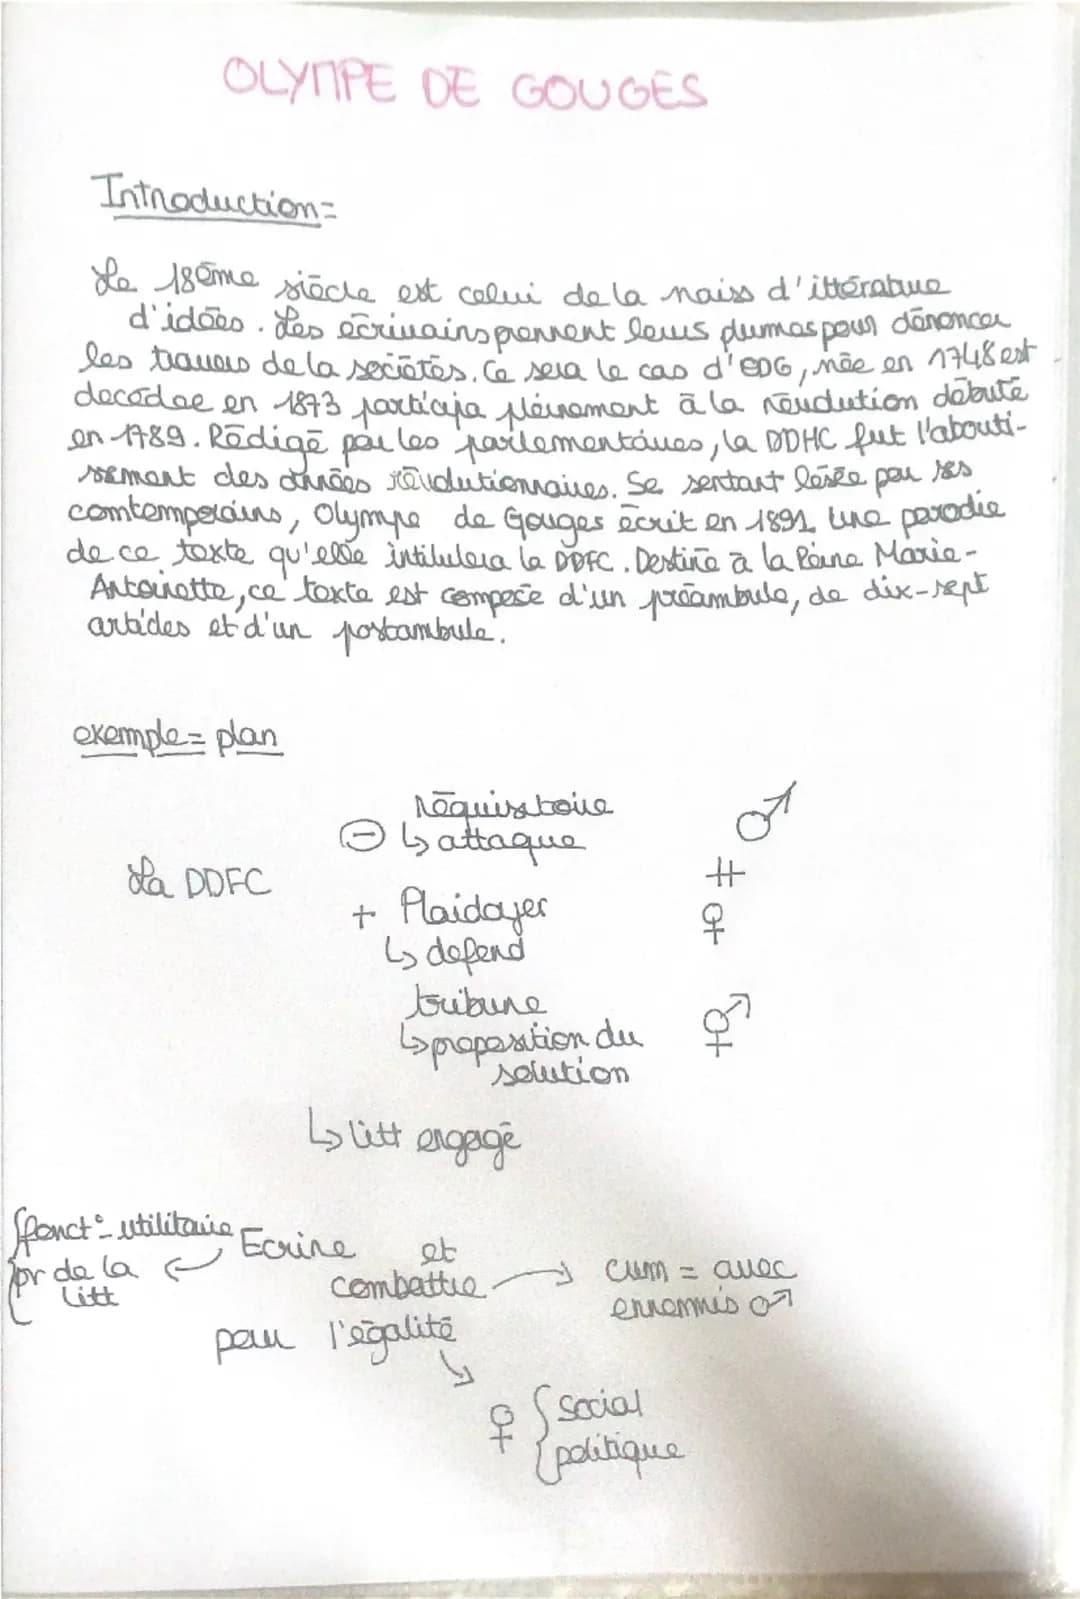 OLYMPE DE GOUGES
Introduction=
Le 18ème siècle est celui de la naiss d'ittérature
d'idées. Les écrivains prennent leurs plumes pour dénoncer
les travers de la sociétés. Ce sera le cas d'ODG, née en 1748 est
decédae en 1873 participa pleinement à la révolution débuté
en 1789. Rédigé par les parlementaires, la DDHC fut l'abouti-
ssement des années révolutionnaires. Se sentant lésée par ses
comtemporains, Olympe de Gouges écrit en 1891 une parodie
de ce texte qu'elle intilulera la DDFC. Destiné à la Reine Marie-
Antoinette, ce texte est composé d'un préambule, de dix-sept
articles et d'un postambule.
exemple= plan
réquisitoire ♂
⊖ ↳ attaque
La DDFC #
+ Plaidoyer ♀
↳ defend
tribune
↳ proposition du
solution
↳ litt engagé
fonct°- utilitaire Ecrire et
pr de la combattre → cum = avec
litt ennemis ♂
pour l'égalité
♀ { social
politique